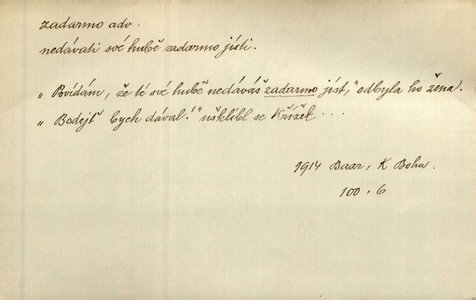 zadarmo adv.
nedávati své hubě zadarmo jísti.
„Povídám, že té své hubě nedáváš zadarmo jíst,“ odbyla ho žena.
„Bodejť bych dával!“ ušklíbl se Křížek...
1914 Baar, K Bohu.
100, 6